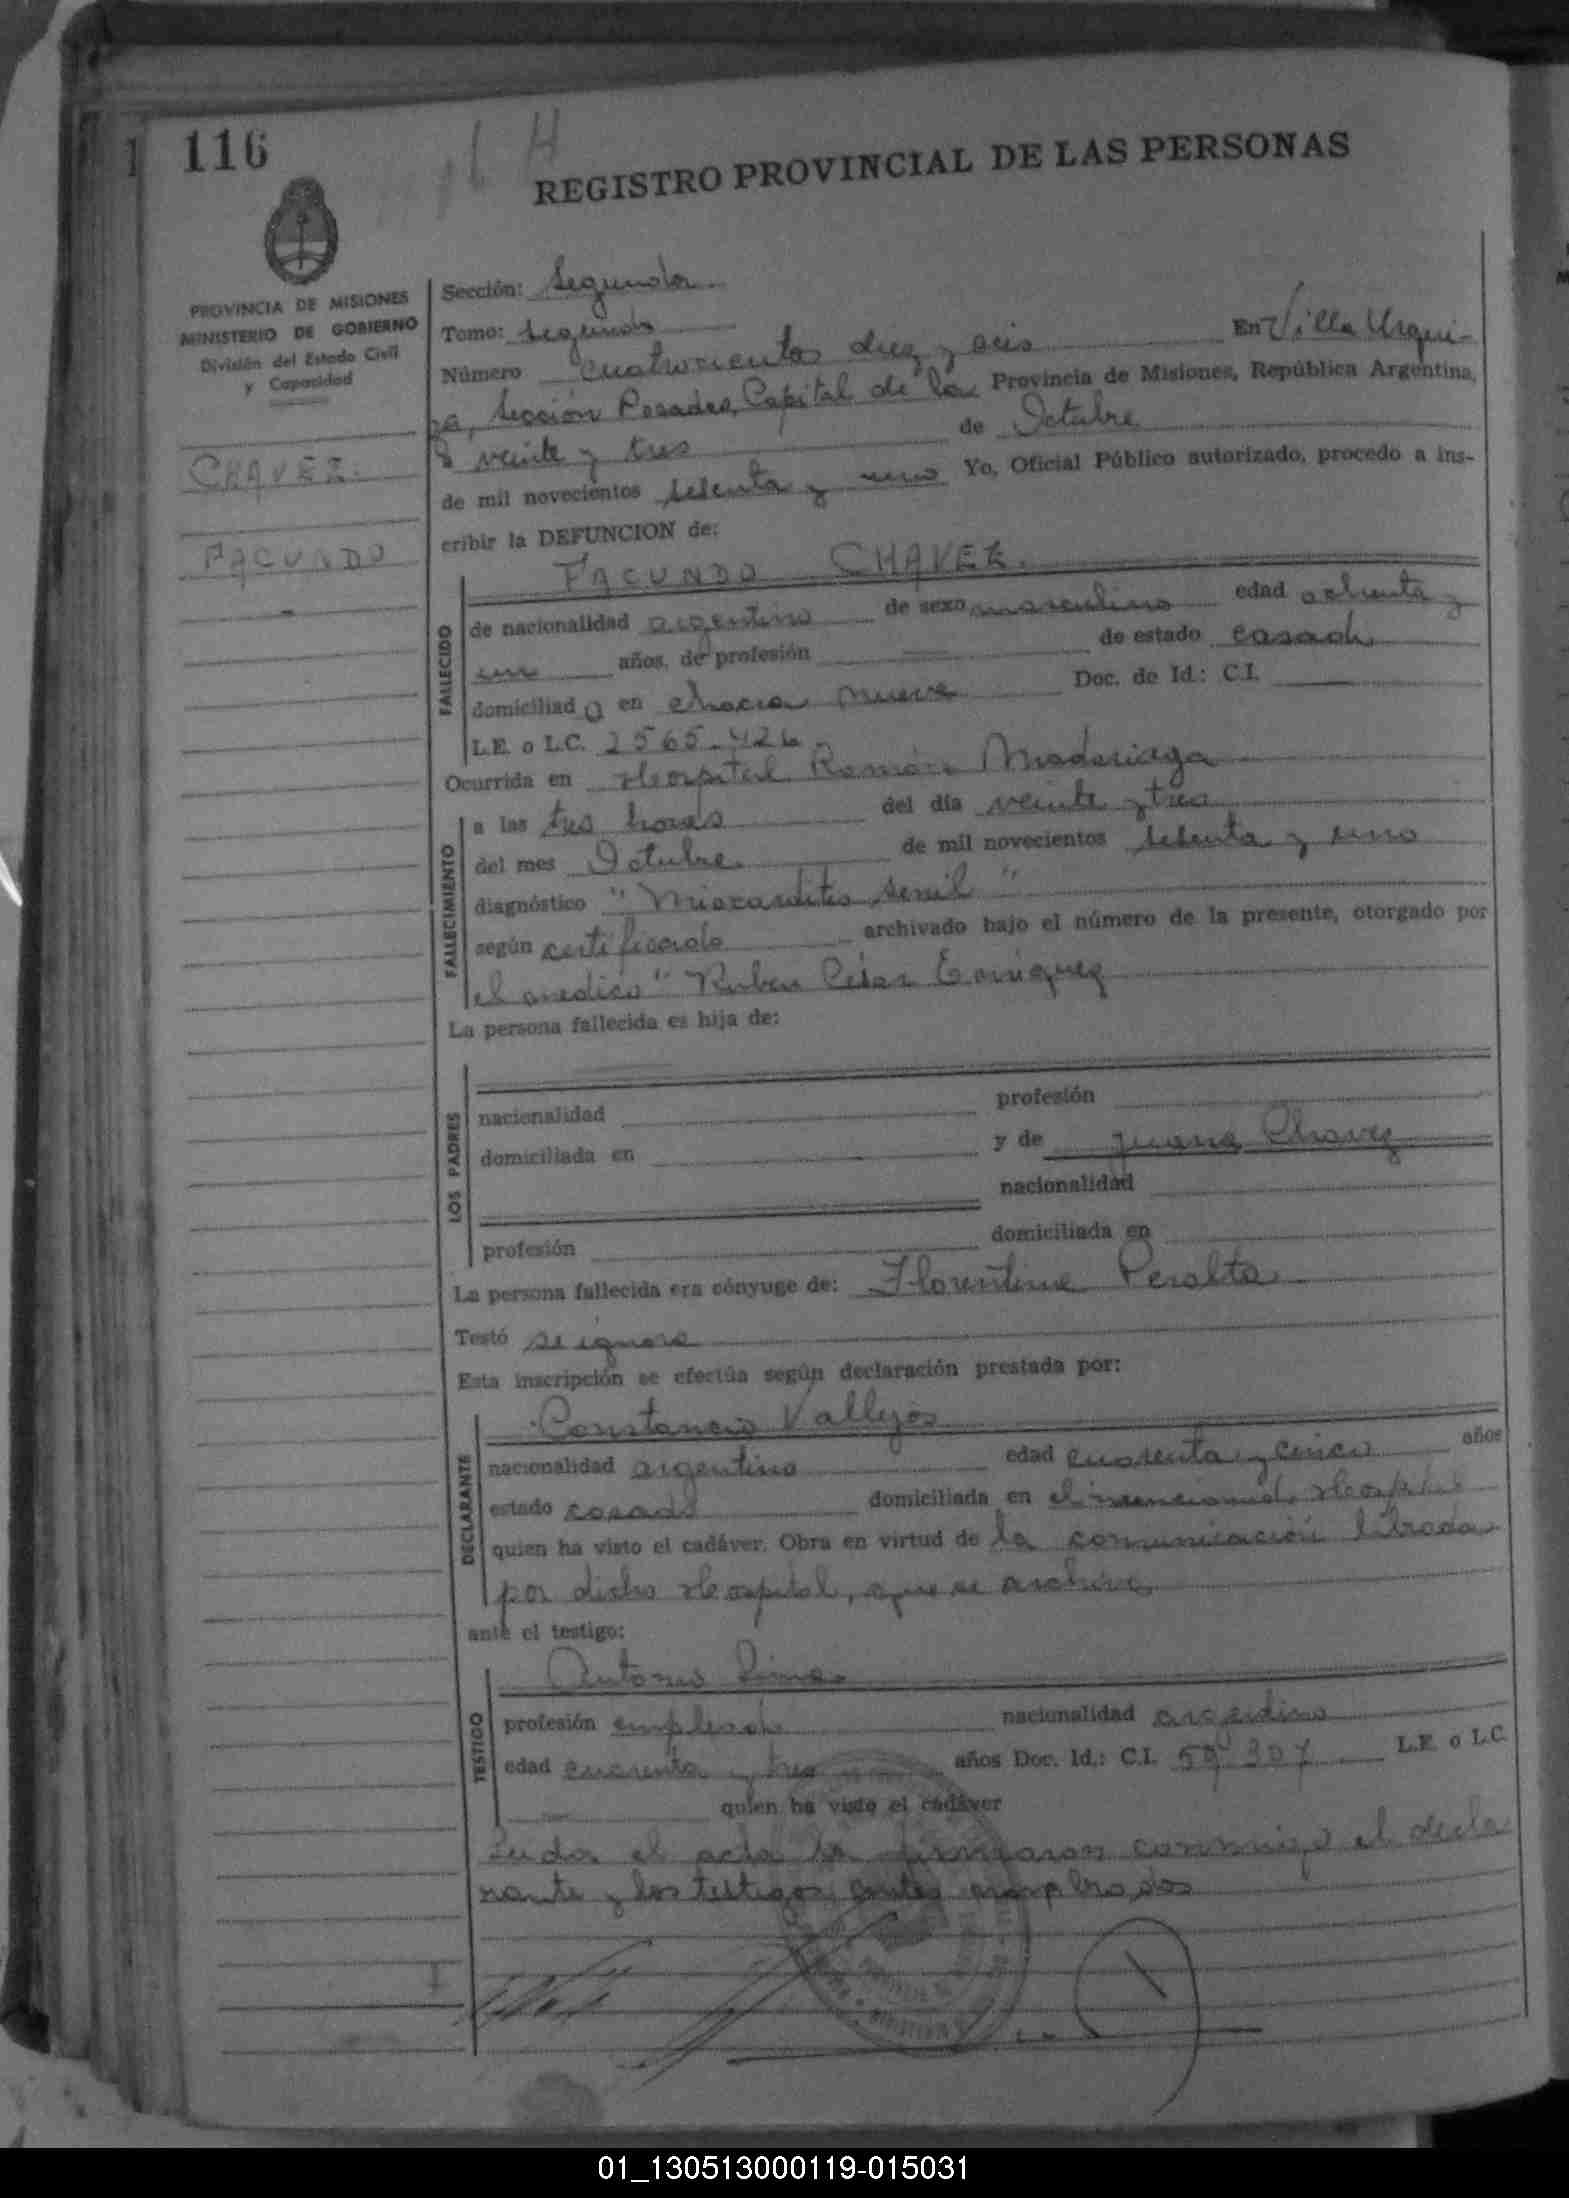 116
REGISTRO PROVINCIAL DE LAS PERSONAS
PROVINCIA DE MISIONES
MINISTERIO DE GOBIERNO
División del Estado Civil
y Capacidad
CHAVEZ.
FACUNDO
Sección: Segunda
Tomo: Segundo
Número cuatrocientos diez y seis En Villa Urqui-
za, Sección Posadas, Capital de la Provincia de Misiones, República Argentina,
a veinte y tres de Octubre
de mil novecientos setenta y uno Yo, Oficial Público autorizado, procedo a ins-
cribir la DEFUNCION de:
FACUNDO CHAVEZ.
FALLECIDO
de nacionalidad argentino de sexo masculino edad ochenta y
un años, de profesión de estado casado
domiciliado en chacra nueve Doc. de Id.: C.I.
L.E. o L.C. 2565.426
Ocurrida en Hospital Ramón Madariaga
FALLECIMIENTO
a las tres horas del día veinte y tres
del mes Octubre de mil novecientos setenta y uno
diagnóstico "Miocarditis senil"
según certificado archivado bajo el número de la presente, otorgado por
el medico "Ruben César Enriquez
La persona fallecida es hija de:
LOS PADRES
nacionalidad profesión
domiciliada en y de Juana Chavez
nacionalidad
profesión domiciliada en
La persona fallecida era cónyuge de: Florentina Peralta
Testó se ignora
Esta inscripción se efectúa según declaración prestada por:
DECLARANTE
Constancio Vallejos
nacionalidad argentino edad cuarenta y cinco años
estado casado domiciliada en el mencionado Hospital
quien ha visto el cadáver. Obra en virtud de la comunicación librada
por dicho Hospital, que se archiva
ante el testigo:
TESTIGO
Antonio
profesión empleado nacionalidad argentino
edad cuarenta y tres años Doc. Id.: C.I. 59.307 L.E. o L.C.
quien ha visto el cadáver
Leida el acta la firmaron conmigo el decla
rante y los testigos antes nombrados
01_130513000119-015031